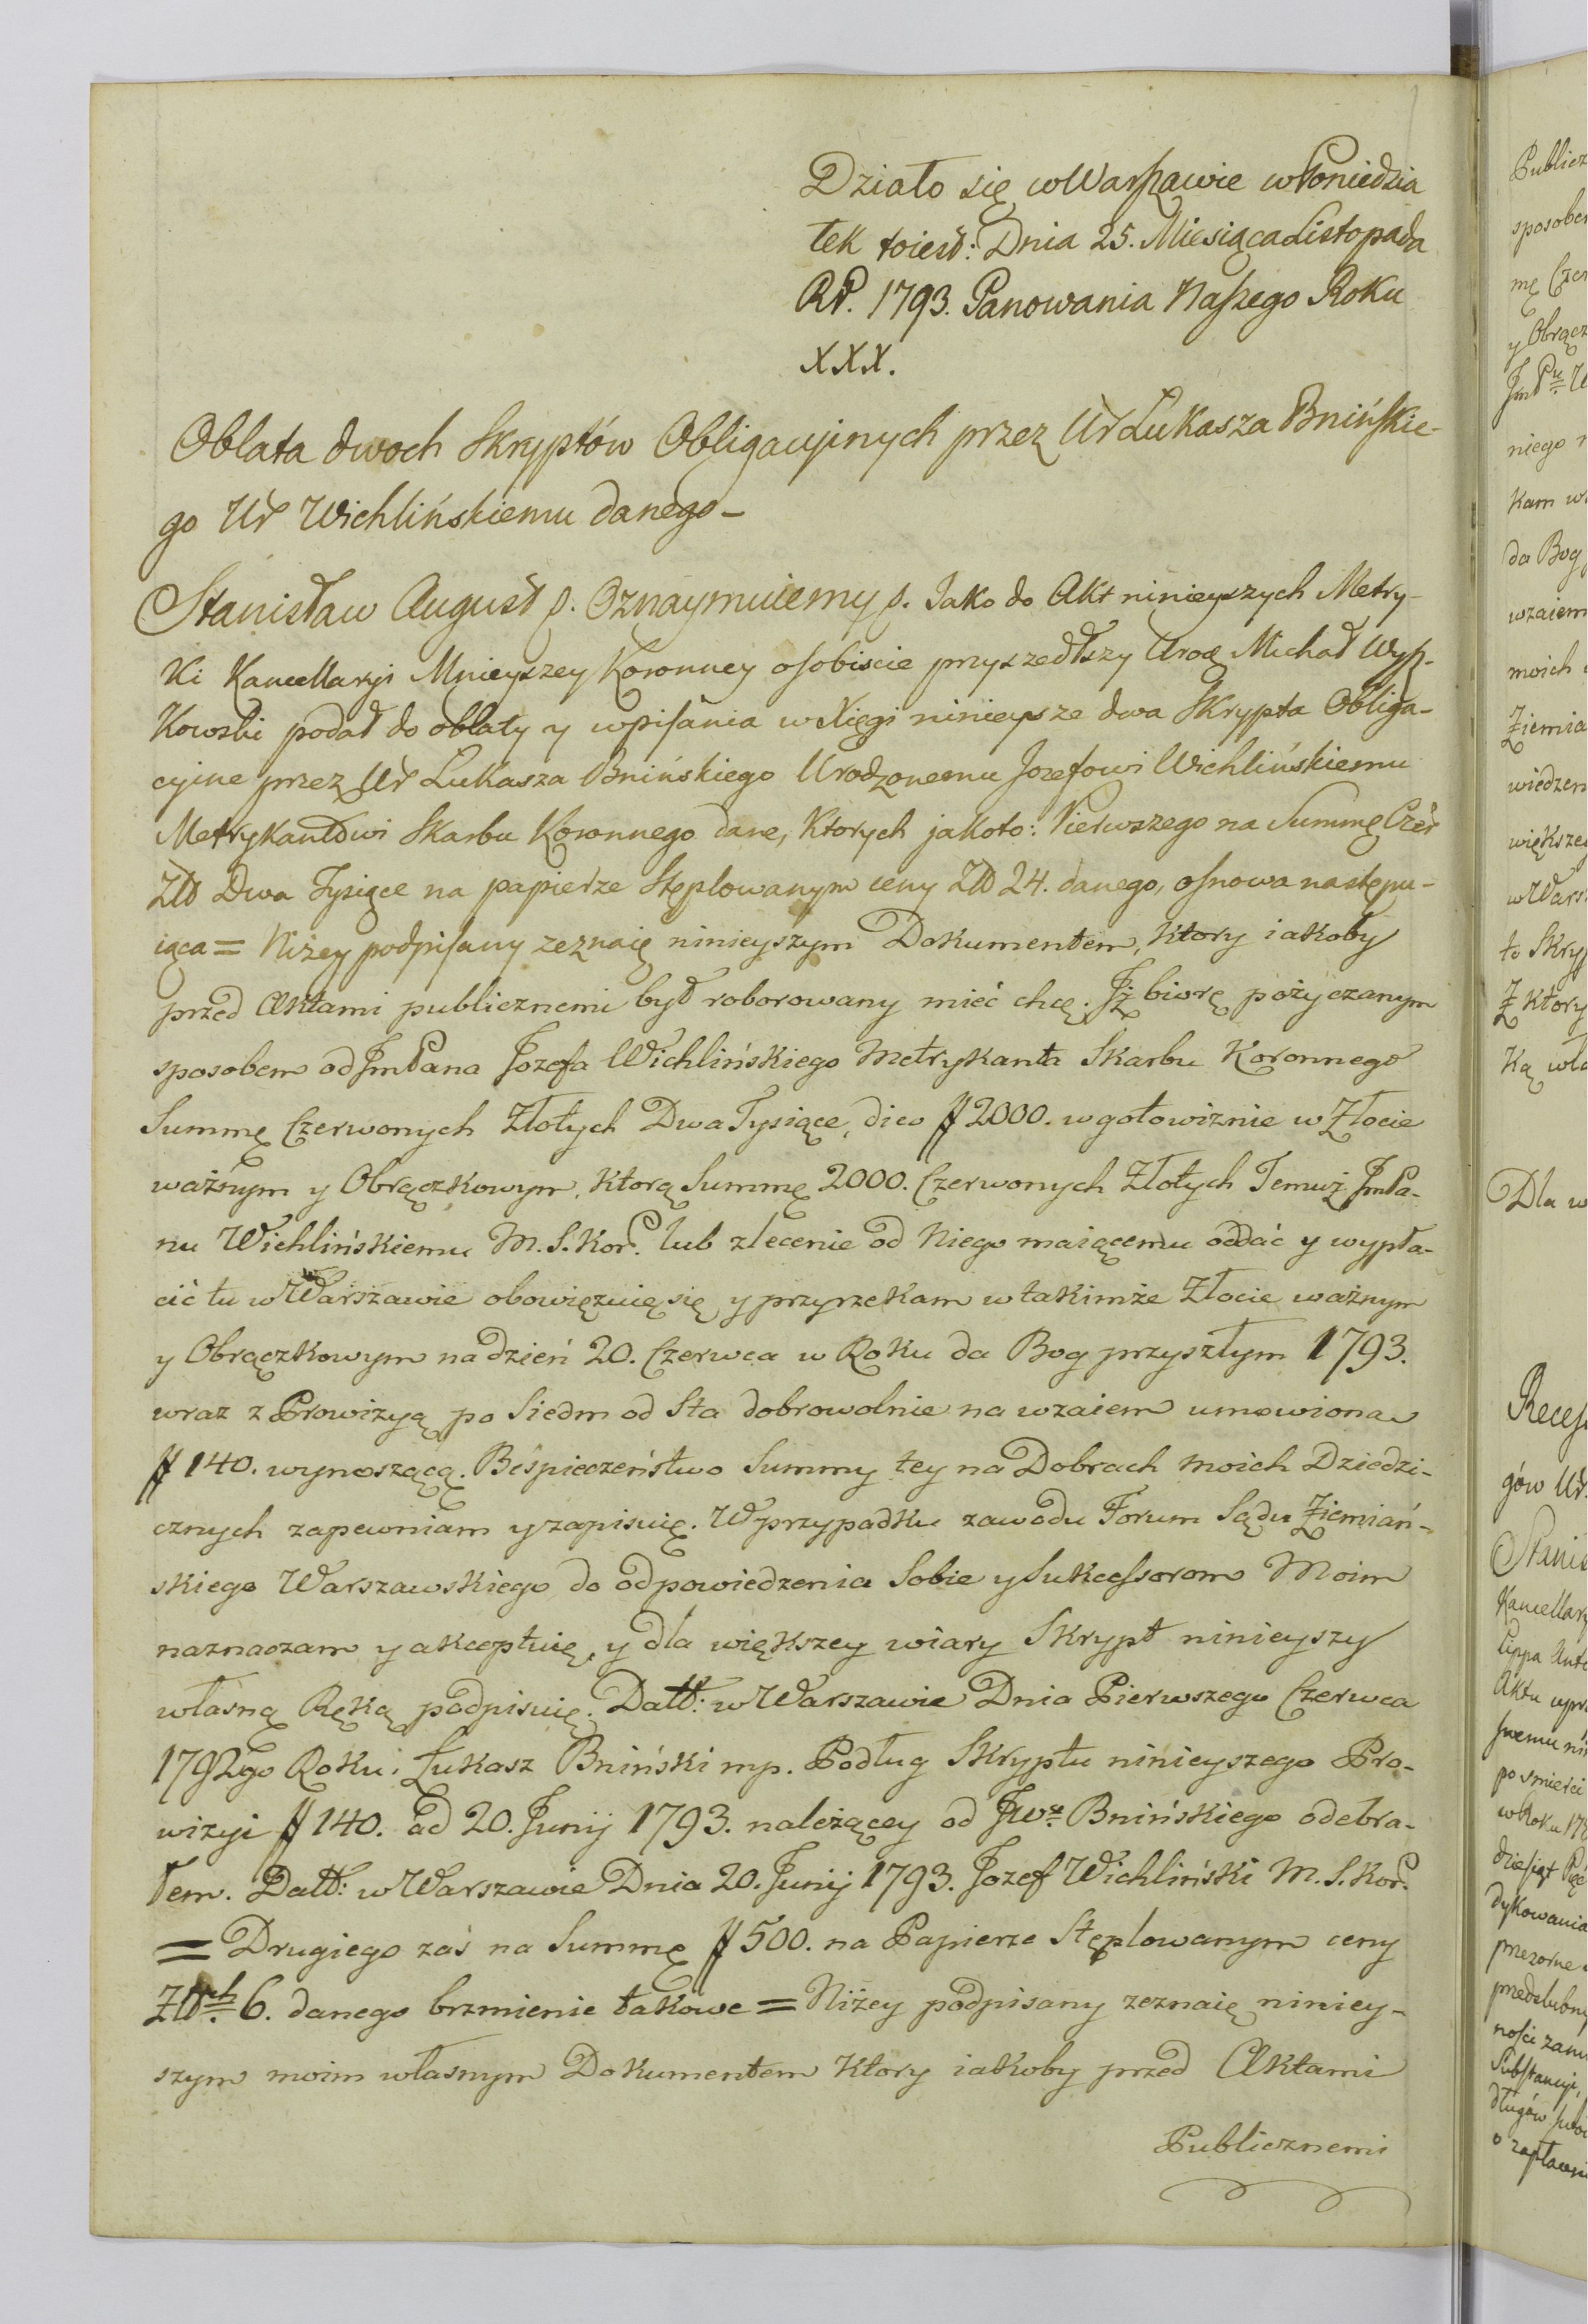 Działo się w Warszawie w Poniedzia
łek to iest: Dnia 25. Miesiąca Listopada
RP. 1793. Panowania Naszego Roku
XXX.
Oblata dwoch Skryptów Obligacyinych przez Ur Łukasza Bnińskie-
go Ur Wichlińskiemu danego-
Stanisław August p. Oznaymuiemy p. Jako do Akt ninieyszych Metry-
ki Kancellaryi Mnieyszey Koronney osobiscie przyszedłszy Urod Michał Wysz-
kowski podał do oblaty y wpisania w Xięgi ninieysze dwa Skrypta Obliga-
cyine przez Ur Łukasza Bnińskiego Urodzonemu Jozefowi Wichlińskiemu
Metrykantowi Skarbu Koronnego dane, Ktorych jakoto: Pierwszego na Summę Czer
Złt Dwa Tysiące na papierze Stęplowanym ceny Złt 24. danego, osnowa następu-
iąca = Niżey podpisany zeznaię ninieyszym Dokumentem, ktory iakoby
przed Aktami publicznemi był roborowany mieć chcę. Iż biorę pożyczanym
sposobem od JmPana Jozefa Wichlińskiego Metrykanta Skarbu Koronnego
Summę Czerwonych Złotych Dwa Tysiące, dico # 2000. w gotowiznie w Złocie
ważnym y Obrączkowym, ktorą Summę 2000. Czerwonych Złotych Temuż JmPa-
nu Wichlińskiemu M. S. Kor. lub zlecenie od Niego maiącemu oddać y wypła-
cić tu w Warszawie obowięzuię się y przyrzekam w takimże Złocie ważnym
y Obrączkowym na dzień 20. Czerwca w Roku da Bog przyszłym 1793.
wraz z Prowizyą po Siedm od Sta dobrowolnie na wzaiem umowioną
# 140. wynoszącą. Beśpieczeństwo Summy tey na Dobrach moich Dziedzi-
cznych zapewniam y zapisuię. W przypadku zawodu Forum Sądu Ziemiań-
skiego Warszawskiego do odpowiedzenia Sobie y Sukcessorom Moim
naznaczam y akceptuię, y dla większey wiary Skrypt ninieyszy
własną Ręką podpisuię. Datt: w Warszawie Dnia Pierwszego Czerwca
1792go Roku: Łukasz Bniński mp. Podług Skryptu ninieyszego Pro-
wizyi # 140. ad 20. Junij 1793. należącey od JWo Bnińskiego odebra-
łem. Datt: w Warszawie Dnia 20. Junij 1793. Jozef Wichliński M. S. Kor.
= Drugiego zaś na Summę # 500. na Papierze Stęplowanym ceny
Złtch 6. danego brzmienie takowe = Niżey podpisany zeznaię niniey-
szym moim własnym Dokumentem ktory iakoby przed Aktami
Publicznemi